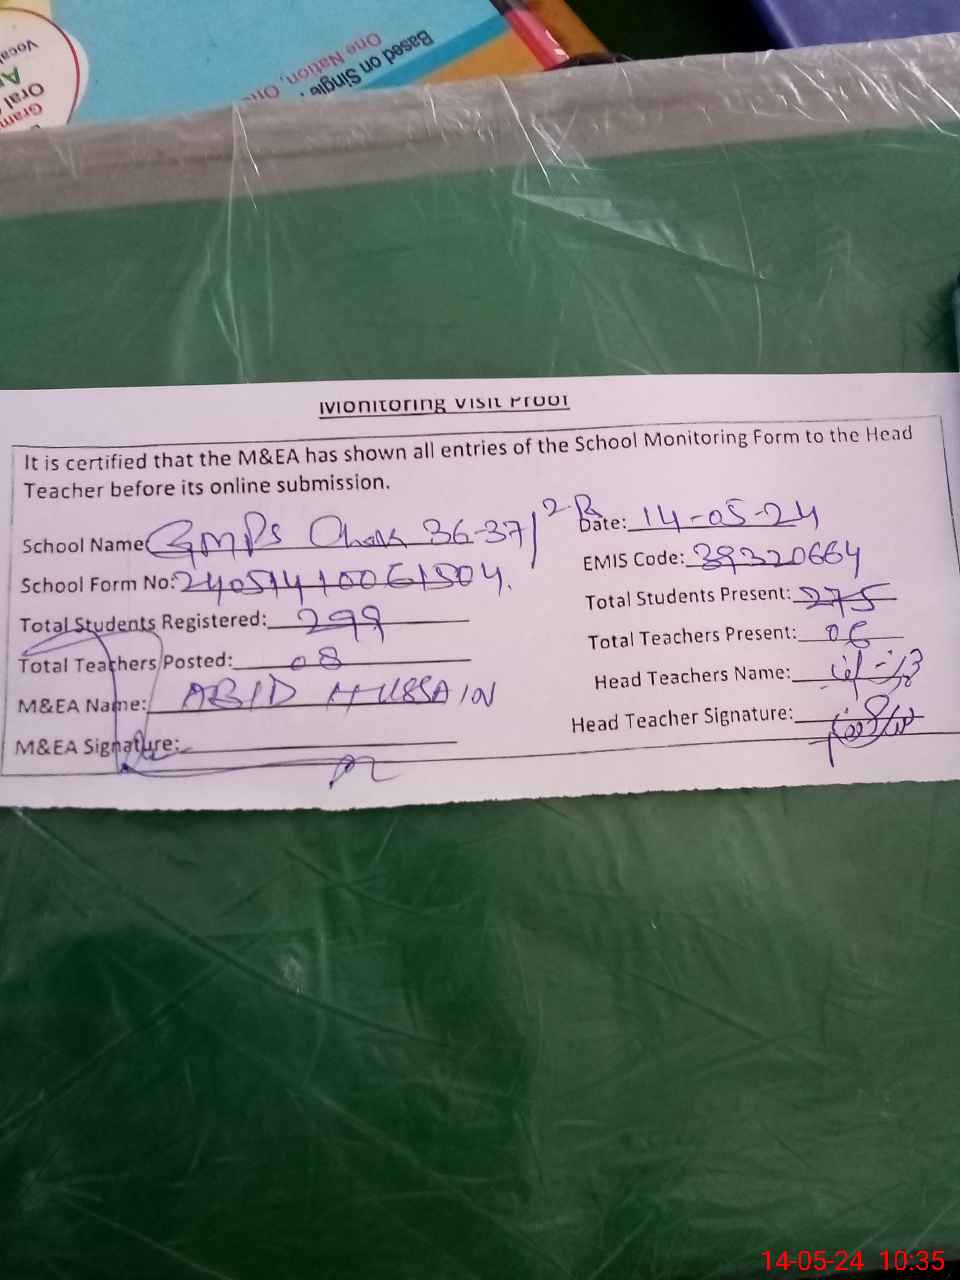 Based on Single
One Nation, One
Vocab
Oral
Gram
Monitoring Visit Proof
It is certified that the M&EA has shown all entries of the School Monitoring Form to the Head
Teacher before its online submission.
School Name GMPS Chak 36-37/2-R Date: 14-05-24
School Form No: 24051410061504. EMIS Code: 39320664
Total Students Registered: 299 Total Students Present: 275
Total Teachers Posted: 08 Total Teachers Present: 06
M&EA Name: ABID HUSSAIN Head Teachers Name:
M&EA Signature: Head Teacher Signature:
14-05-24 10:35